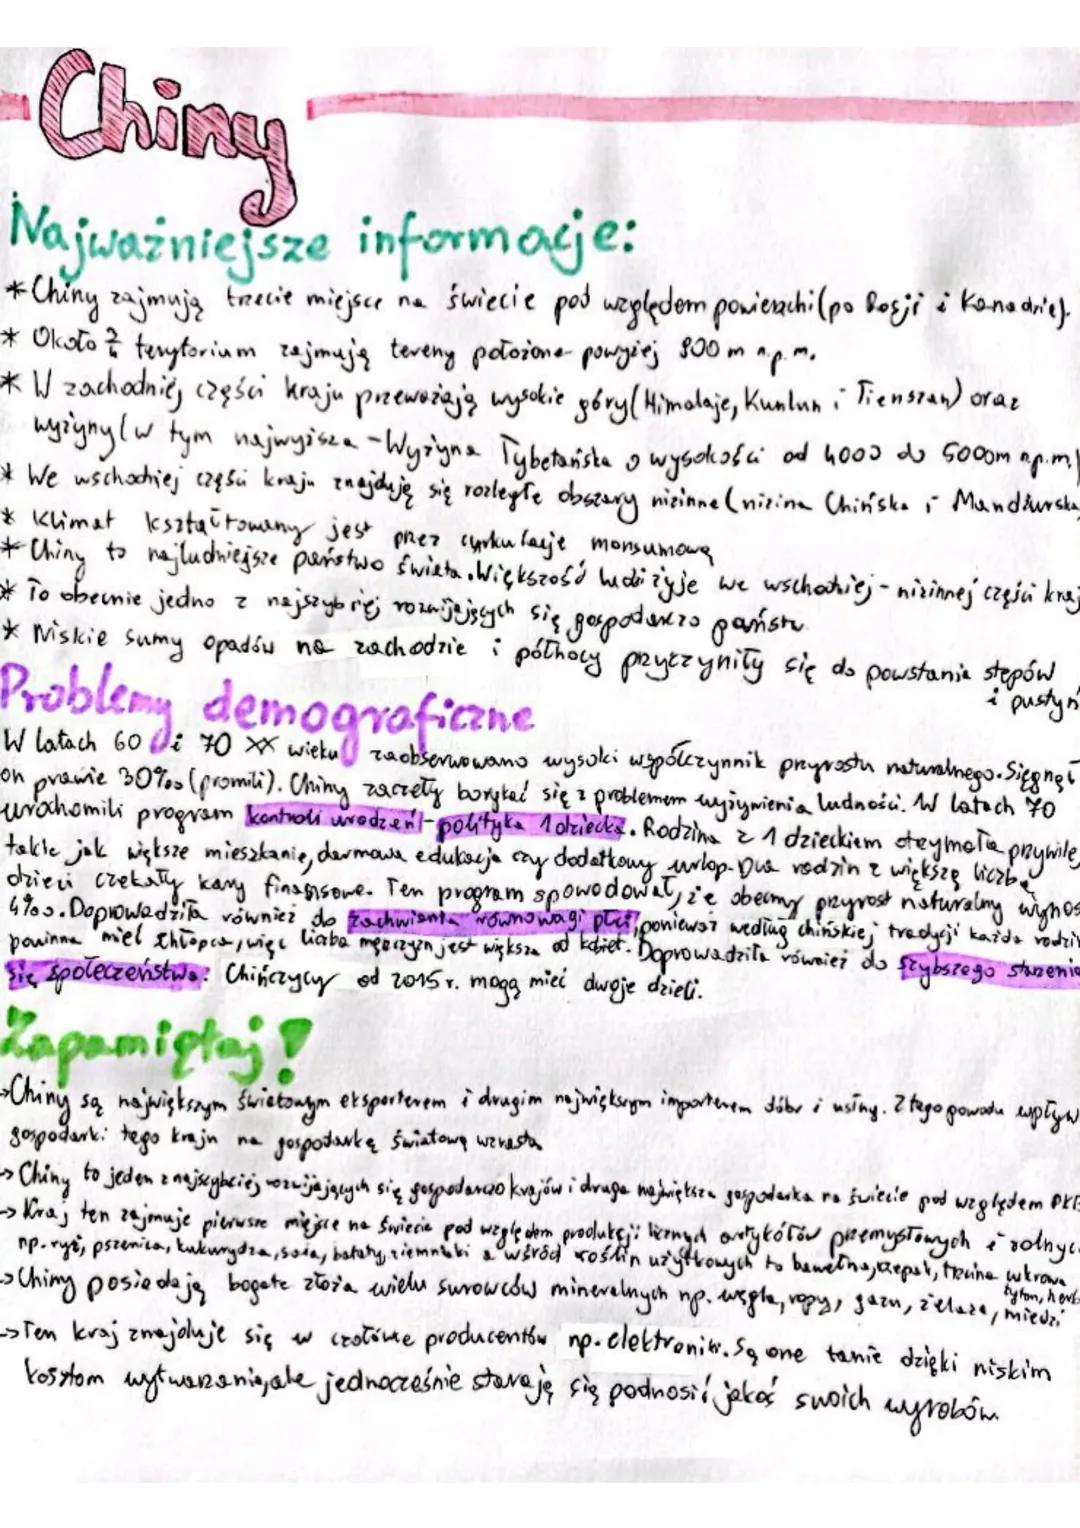 Chiny
Najważniejsze informacje:
* Chiny zajmują trzecie miejsce na świecie pod względem powierzchi (po Rosji i Kanadzie).
* Około terytorium zajmują tereny położone powyżej 800 m n.p.m.
* W zachodniej części kraju przeważają wysokie góry (Himalaje, Kunlun i Tienszan) oraz
wyżyny (w tym najwyższa - Wyżyna Tybetańska o wysokości od 4000 do 5000m n.p.m.)
* We wschodniej części kraju znajduję się rozległe obszary nizinne (nizina Chińska i Mandżurska
* Klimat kształtowany jest przez cyrkulację monsunową
* Chiny to najludniejsze państwo świata. Większość ludzi żyje we wschodniej - nizinnej części kraj
* To obecnie jedno z najszybciej rozwijających się gospodarczo państw
* Niskie sumy opadów na zachodzie i północy przyczyniły się do powstania stepów
i pustyń
Problemy demograficzne
W latach 60 i 70 XX wieku zaobserwowano wysoki współczynnik przyrostu naturalnego. Sięgnął
on prawie 30‰ (promili). Chiny zaczęły borykać się z problemem wyżywienia ludności. W latach 70
urochomili program kontroli urodzeń - polityka 1 dziecka. Rodzina z 1 dzieckiem otrzymała przywile
takie jak większe mieszkanie, darmowa edukacja czy dodatkowy urlop. Dla rodzin z większą liczbą
dzieci czekały kary finansowe. Ten program spowodował, że obecny przyrost naturalny wynos
4‰. Doprowadziła również do zachwiania równowagi płci, ponieważ według chińskiej tradycji każda rodzin
powinna mieć chłopca, więc liczba mężczyzn jest większa od kobiet. Doprowadziła również do szybszego starzenia
się społeczeństwa. Chińczycy od 2015 r. mogą mieć dwoje dzieci.
Zapamiętaj!
→ Chiny są największym światowym eksporterem i drugim największym importerem dóbr i usług. Z tego powodu wpływ
gospodarki tego kraju na gospodarkę światową wzrasta
→ Chiny to jeden z najszybciej rozwijających się gospodarczo krajów i druga największa gospodarka na świecie pod względem PKB
→ Kraj ten zajmuje pierwsze miejsce na świecie pod względem produkcji licznych artykółów przemysłowych i rolnyc
np. ryż, pszenica, kukurydza, soia, bataty, ziemniaki a wśród roślin użytkowych to bawełna, rzepak, trzcina cukrowa
tytoń, herb
→ Chiny posiadają bogate złoża wielu surowców mineralnych np. węgla, ropy, gazu, żelaza, miedzi
→ Ten kraj znajduje się w czołówce producentów np. elektroniki. Są one tanie dzięki niskim
kosztom wytwarzania, ale jednocześnie starają się podnosić jakoś swoich wyrobów